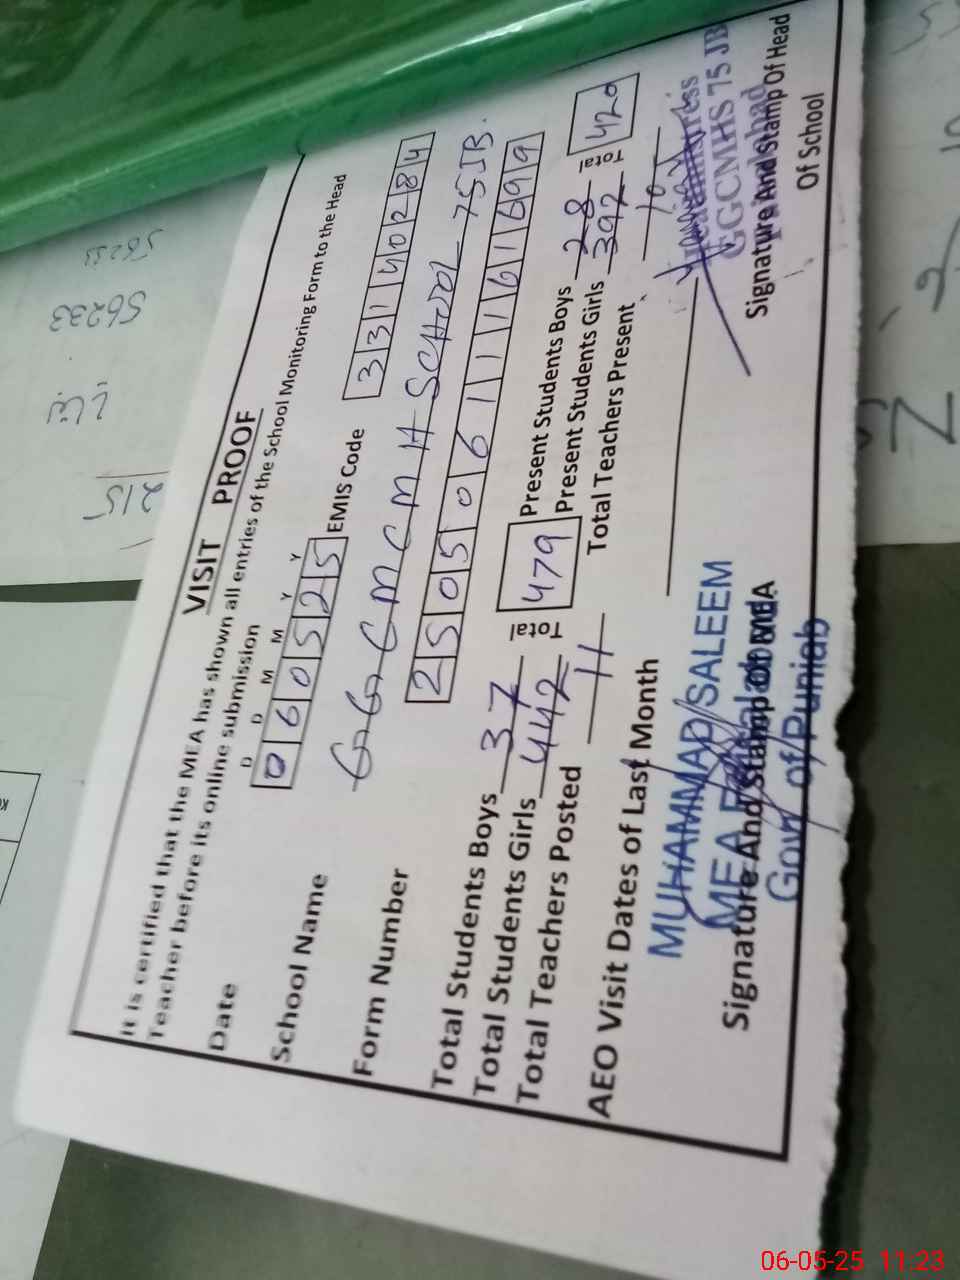 VISIT PROOF
It is certified that the MEA has shown all entries of the School Monitoring Form to the Head
Teacher before its online submission
D D M M Y Y
Date 060525 EMIS Code 33140284
School Name GGCMCMH SCHOOL 75JB.
Form Number 25050611161699
Total Students Boys 37 Total 479 Present Students Boys 28 Total 420
Total Students Girls 442 Present Students Girls 392
Total Teachers Posted 11 Total Teachers Present 10
AEO Visit Dates of Last Month
MUHAMMAD SALEEM
MEA
Signature And Stamp Of MEA
Govt of Punjab
Headmistress
GGCMHS 75 JB
Signature And Stamp Of Head
Of School
56233
56233
215
06-05-25 11:23